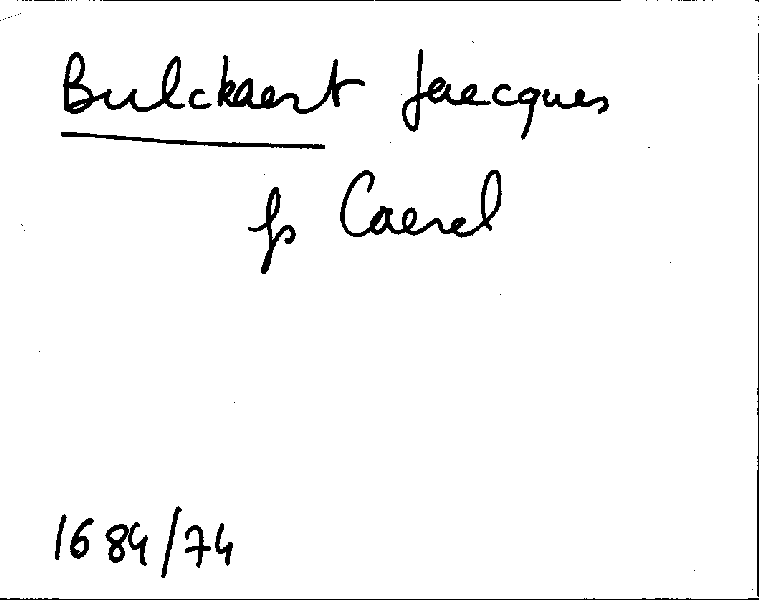 Bulckaert Jaecques
fs Caerel
1684/74